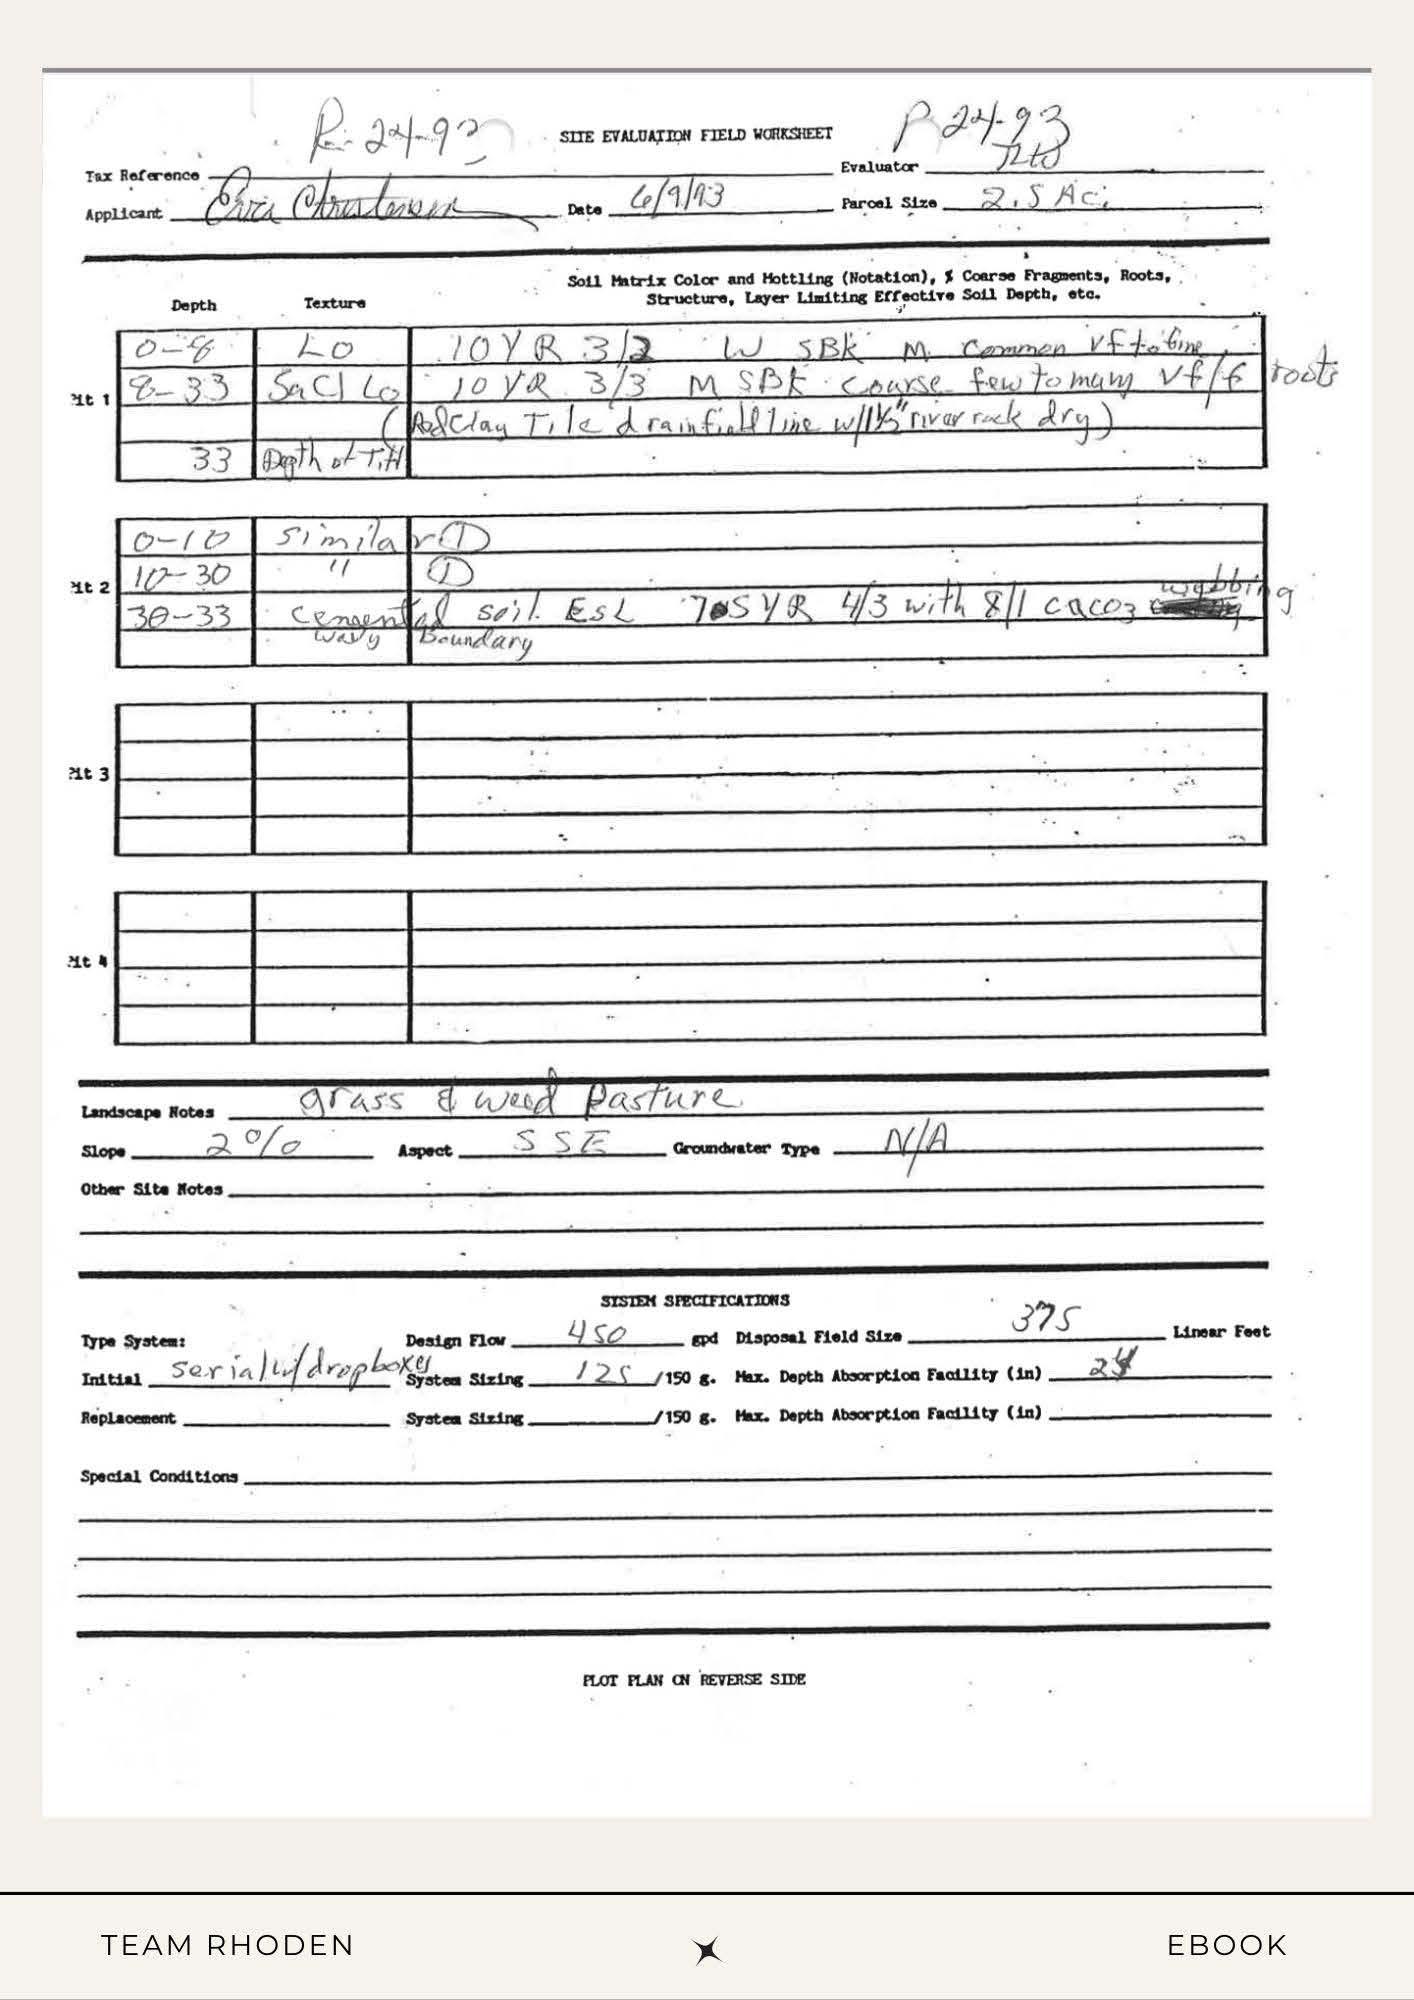 R-24-93 SITE EVALUATION FIELD WORKSHEET P 24-93
Tax Reference Evaluator
Applicant Christensen Date 6/9/93 Parcel Size 2.5 Ac.
Soil Matrix Color and Mottling (Notation), % Coarse Fragments, Roots,
Depth Texture Structure, Layer Limiting Effective Soil Depth, etc.
0-8 Lo 10YR 3/2 W SBK M common vf to fine
Pit 1 8-33 SaCl Lo 10YR 3/3 M SBK course few to many vf/f roots
(Red Clay Tile drainfield line w/1½" river rock dry)
33 Depth of Till
0-10 similar ①
Pit 2 10-30 " ①
30-33 cemented soil ESL 7.5YR 4/3 with 8/1 caco3 webbing
wavy Boundary
Pit 3
Pit 4
Landscape Notes grass & weed Pasture
Slope 2% Aspect SSE Groundwater Type N/A
Other Site Notes
SYSTEM SPECIFICATIONS
Type System: Design Flow 450 gpd Disposal Field Size 375 Linear Feet
Initial serial w/dropboxes System Sizing 125 /150 g. Max. Depth Absorption Facility (in) 24
Replacement System Sizing /150 g. Max. Depth Absorption Facility (in)
Special Conditions
PLOT PLAN ON REVERSE SIDE
TEAM RHODEN EBOOK